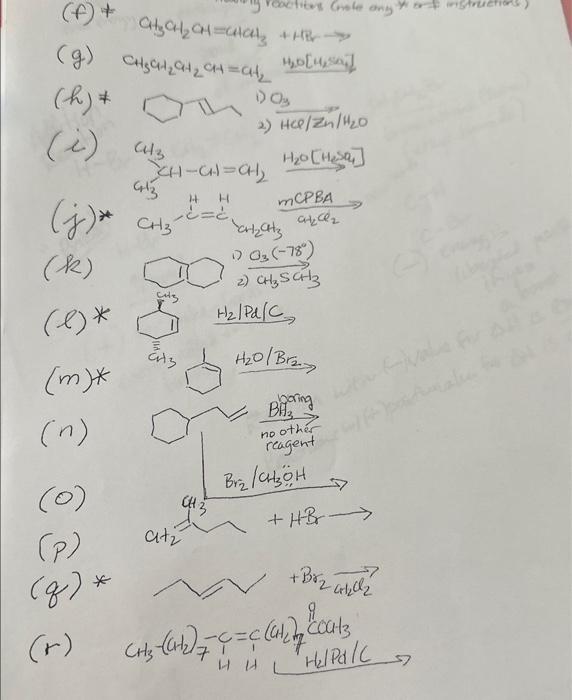 reactions (note any * or ‡ instructions)
(f)* CH3CH2CH=CHCH3 + HBr →
(g) CH3CH2CH2CH=CH2 H2O[H2SO4]
(h)‡ 1) O3
2) HCl/Zn/H2O
(i) CH3
CH-CH=CH2 H2O[H2SO4]
CH3
(j)* H H
CH3 C=C CH2CH3 mCPBA
CH2Cl2
(k) 1) O3 (-78°)
2) CH3SCH3
(l)* CH3
H2/Pd/C
CH3
(m)* H2O/Br2
(n) boring
BH3
no other
reagent
(o) Br2/CH3ÖH
(p) CH3
CH2 + HBr →
(q)* + Br2
CH2Cl2
(r) O
CH3-(CH2)7-C=C(CH2)7COCH3
H H H2/Pd/C